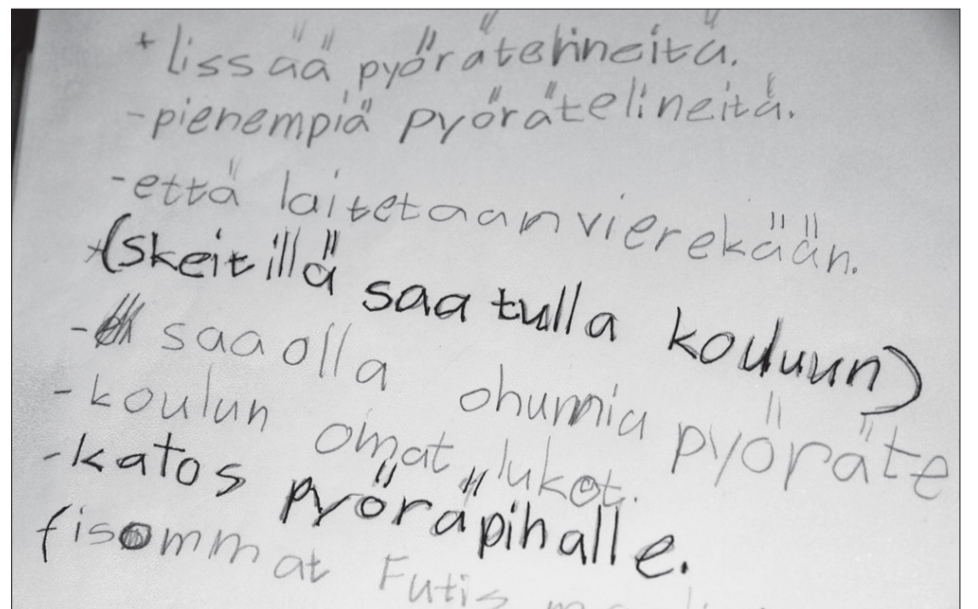 + lissää pyörätelineitä.
- pienempiä pyörätelineitä.
- että laitetaan vierekään.
+ (skeitillä saa tulla kouluun)
- saa olla ohumia pyöräte
- koulun omat lukot.
- katos pyöräpihalle.
fisommat Futis